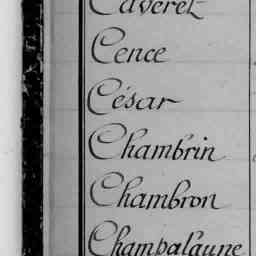 Caveret
Cence
César
Chambrin
Chambron
Champalaune